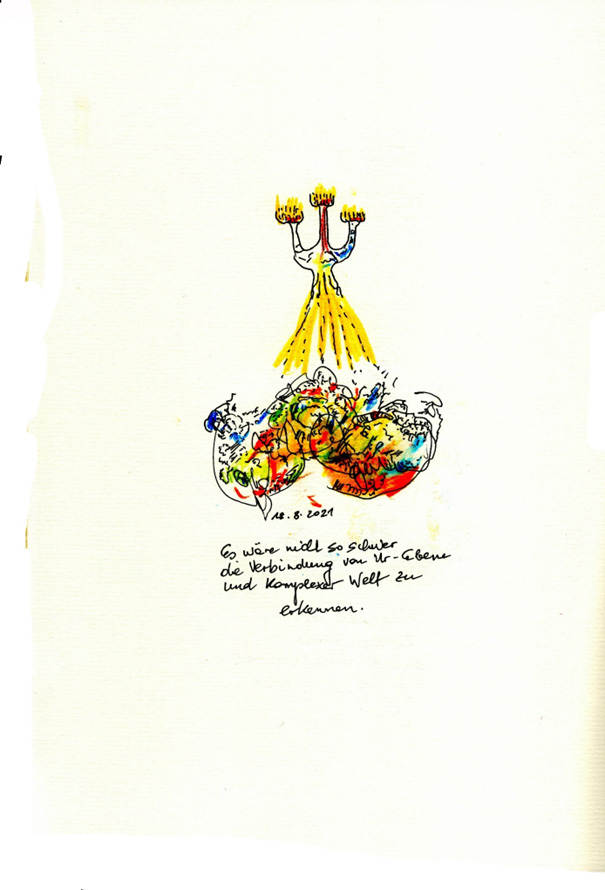 18.8.2021
Es wäre nicht so schwer
die Verbindung von Ur-Ebene
und Komplexer Welt zu
erkennen.